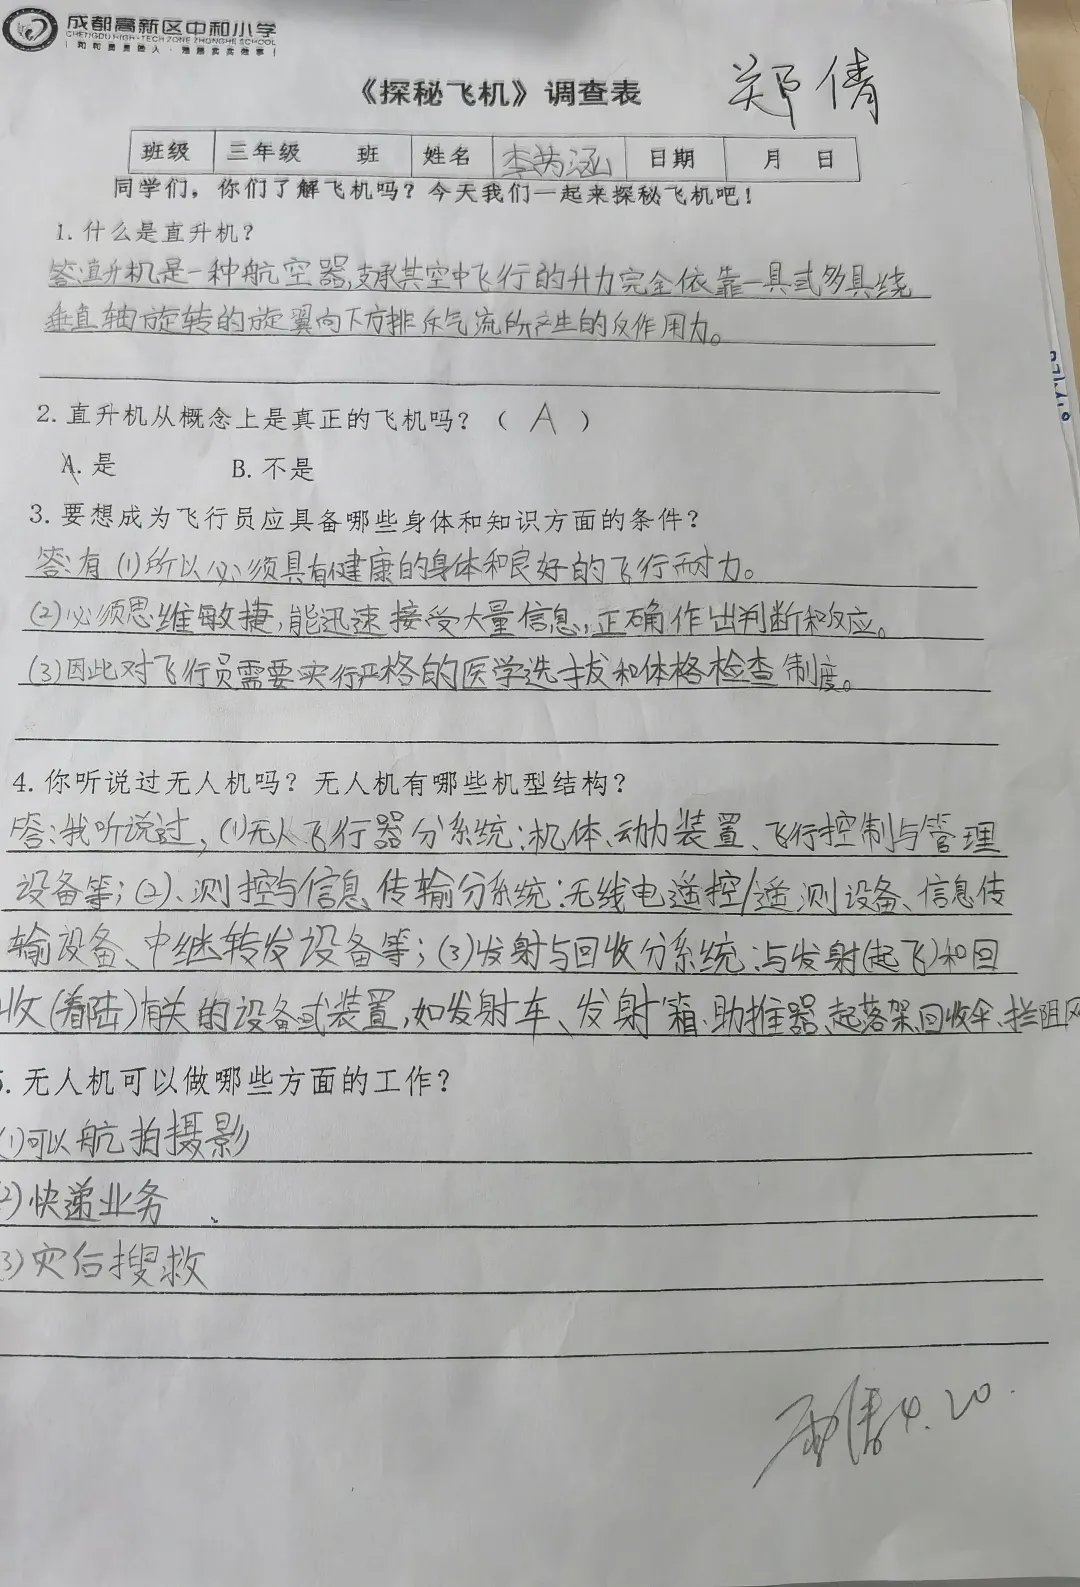 成都高新区中和小学
CHENGDU HIGH-TECH ZONE ZHONGHE SCHOOL
《探秘飞机》调查表
郑倩
班级 三年级 班 姓名 李 涵 日期 月 日
同学们，你们了解飞机吗？今天我们一起来探秘飞机吧！
1. 什么是直升机？
答:直升机是一种航空器,支承其空中飞行的升力完全依靠一具或多具绕
垂直轴旋转的旋翼向下方排斥气流所产生的反作用力。
2. 直升机从概念上是真正的飞机吗？（ A ）
A. 是 B. 不是
3. 要想成为飞行员应具备哪些身体和知识方面的条件？
答:有 (1)所以必须具有健康的身体和良好的飞行耐力。
(2)必须思维敏捷,能迅速接受大量信息,正确作出判断和反应。
(3)因此对飞行员需要实行严格的医学选拔和体格检查制度。
4. 你听说过无人机吗？无人机有哪些机型结构？
答:我听说过,(1)无人飞行器分系统:机体、动力装置、飞行控制与管理
设备等;(2)、测控与信息传输分系统:无线电遥控/遥测设备、信息传
输设备、中继转发设备等;(3)发射与回收分系统:与发射(起飞)和回
收(着陆)有关的设备或装置,如发射车、发射箱、助推器、起落架、回收伞、拦阻网
5. 无人机可以做哪些方面的工作？
(1)可以航拍摄影
(2)快递业务
(3)灾后搜救
4.20.